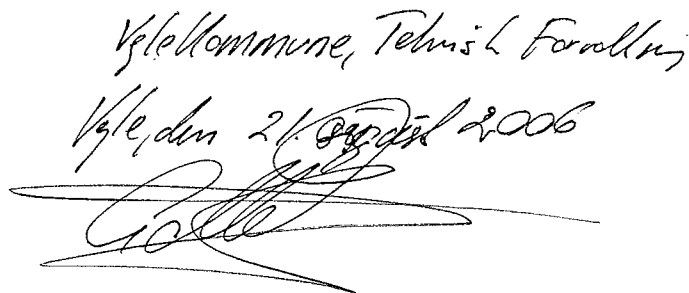 Vejle Kommune, Teknisk Forvaltning
Vejle, den 21. august 2006